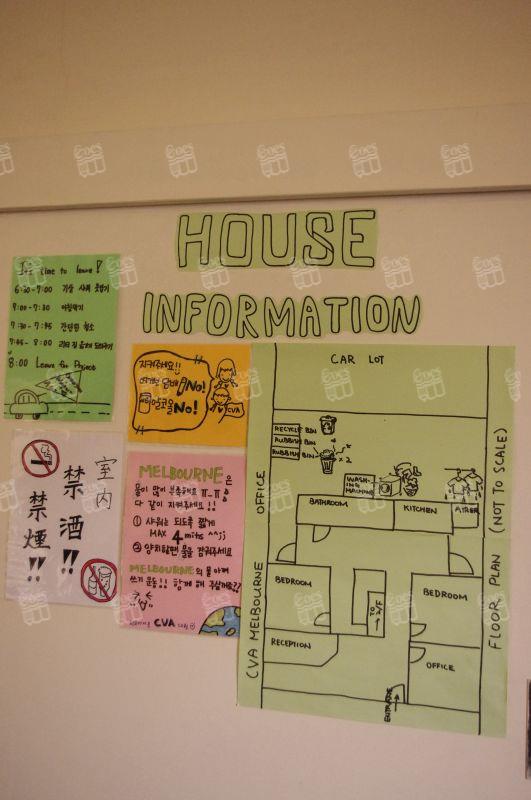 HOUSE
INFORMATION
It's time to leave!
6:30-7:00 기상 샤워 옷입기
7:00-7:30 아침먹기
7:30-7:45 간단한 청소
7:45-8:00
8:00 Leave for Project
지켜주세요!!
No!
No!
CVA
室内
禁酒!!
禁煙!!
MELBOURNE은
물이 많이 부족해요 ㅠ-ㅠ
다 같이 지켜주세요!!
① 샤워는 되도록 짧게
MAX 4 mins ^^;;
② 양치할땐 물을 잠궈주세요
MELBOURNE의 물 아껴
쓰기 운동!! 함께 해 주실거죠??
CVA
CAR LOT
RECYCLE BIN
RUBBISH BIN
RUBBISH BIN
x 2
WASH-
ING
MACHINE
AIRER
BATHROOM
KITCHEN
BEDROOM
BEDROOM
TO 1/F
RECEPTION
OFFICE
ENTRANCE
CVA MELBOURNE OFFICE
FLOOR PLAN (NOT TO SCALE)